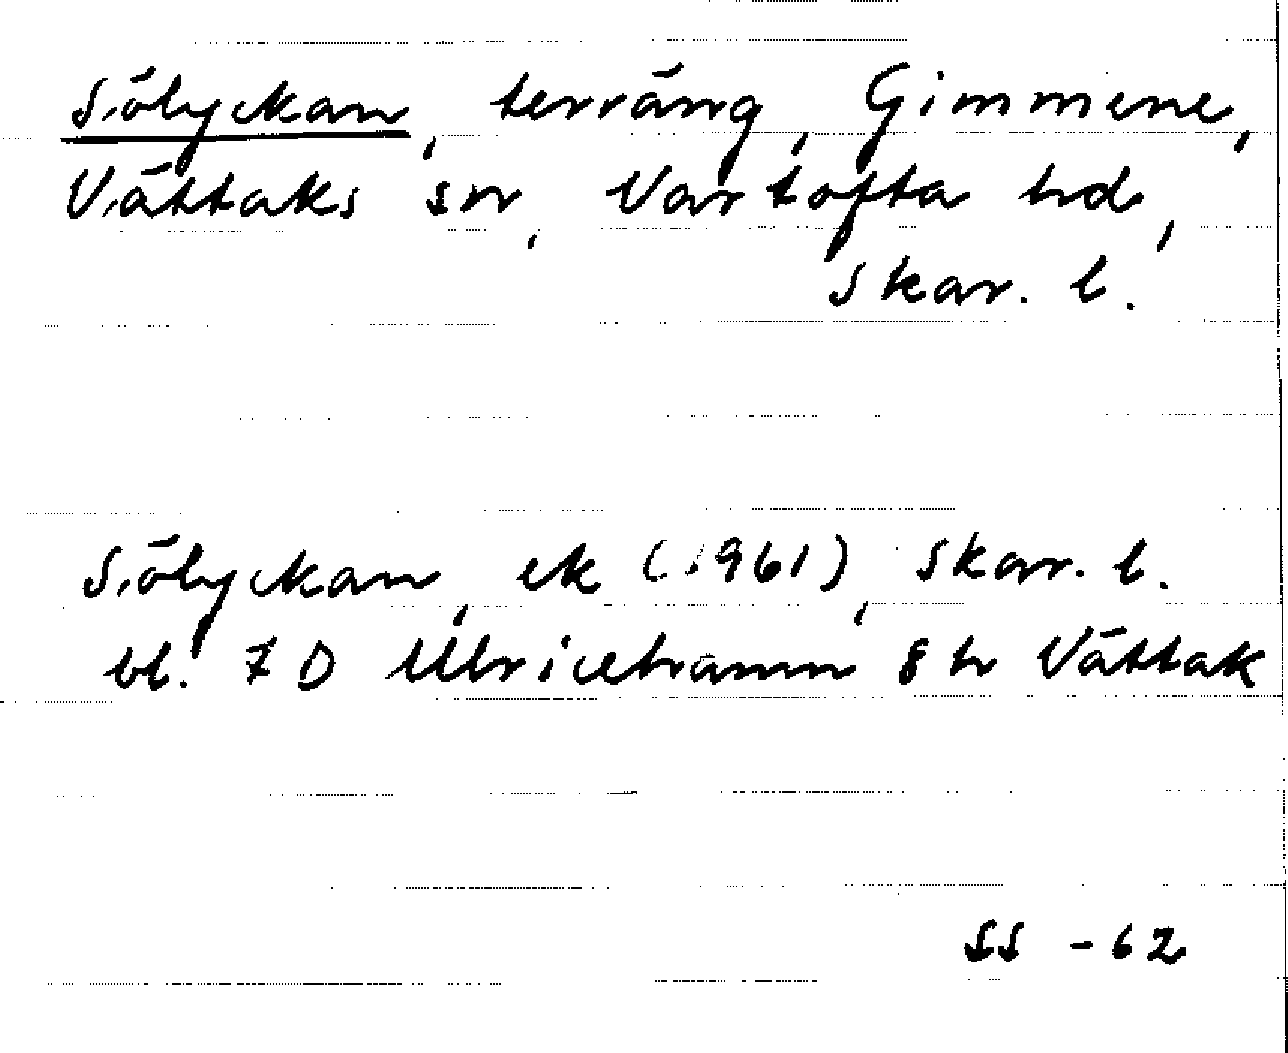 Sölyckan, terräng, Gimmene,
Vättaks sn, Vartofta hd,
Skar. l.
Sölyckan, ek (1961), Skar. l.
bl. 7 D Ulricehamn 8 h Vättak
SS -62